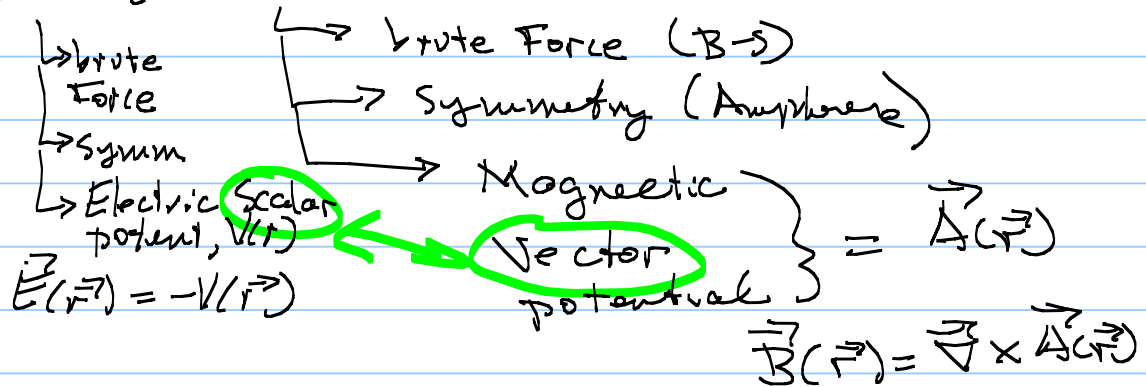 ↳ brute Force
↳ symm
↳ Electric Scalar potent, V(r)
E⃗(r⃗) = -V(r⃗)
→ brute Force (B-S)
→ Symmetry (Amphere)
→ Magneetic
Vector
potential } = A⃗(r⃗)
B⃗(r⃗) = ∇⃗ × A⃗(r⃗)